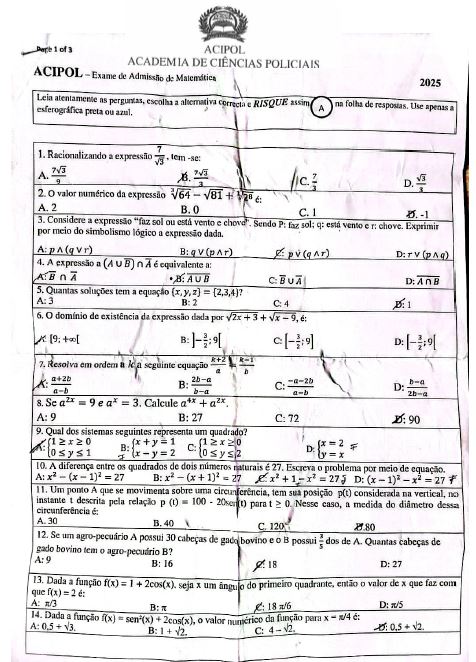 Page 1 of 3
ACIPOL
ACADEMIA DE CIÊNCIAS POLICIAIS
ACIPOL – Exame de Admissão de Matemática
2025
Leia atentamente as perguntas, escolha a alternativa correcta e RISQUE assim A na folha de respostas. Use apenas a
esferográfica preta ou azul.
1. Racionalizando a expressão 7/√3, tem -se:
A. 7√3/9 B. 7√3/3 C. 7/3 D. √3/3
2. O valor numérico da expressão ∛64 − √81 + é:
A. 2 B. 0 C. 1 D. -1
3. Considere a expressão “faz sol ou está vento e chove”. Sendo P: faz sol; q: está vento e r: chove. Exprimir
por meio do simbolismo lógico a expressão dada.
A: p ∧ (q ∨ r) B: q ∨ (p ∧ r) C: p ∨ (q ∧ r) D: r ∨ (p ∧ q)
4. A expressão a (A ∪ B̅) ∩ A̅ é equivalente a:
A: B̅ ∩ A̅ B: A ∪ B C: B̅ ∪ A̅ D: A ∩ B̅
5. Quantas soluções tem a equação {x, y, z} = {2,3,4}?
A: 3 B: 2 C: 4 D: 1
6. O domínio de existência da expressão dada por √2x + 3 + √x − 9, é:
A: [9; +∞[ B: ]−3/2; 9[ C: [−3/2; 9] D: [−3/2; 9[
7. Resolva em ordem a k a seguinte equação k+2/a = k−1/b
A: a+2b/a−b B: 2b−a/b−a C: −a−2b/a−b D: b−a/2b−a
8. Se a²ˣ = 9 e aˣ = 3. Calcule a⁴ˣ + a²ˣ.
A: 9 B: 27 C: 72 D: 90
9. Qual dos sistemas seguintes representa um quadrado?
A: {1 ≥ x ≥ 0 B: {x + y = 1 C: {1 ≥ x ≥ 0 D: {x = 2
{0 ≤ y ≤ 1 {x − y = 2 {0 ≤ y ≤ 2 {y = x
10. A diferença entre os quadrados de dois números naturais é 27. Escreva o problema por meio de equação.
A: x² − (x − 1)² = 27 B: x² − (x + 1)² = 27 C: x² + 1 − x² = 27 D: (x − 1)² − x² = 27
11. Um ponto A que se movimenta sobre uma circunferência, tem sua posição p(t) considerada na vertical, no
instante t descrita pela relação p (t) = 100 - 20sen(t) para t ≥ 0. Nesse caso, a medida do diâmetro dessa
circunferência é:
A. 30 B. 40 C. 120 D. 80
12. Se um agro-pecuário A possui 30 cabeças de gado bovino e o B possui 3/5 dos de A. Quantas cabeças de
gado bovino tem o agro-pecuário B?
A: 9 B: 16 C: 18 D: 27
13. Dada a função f(x) = 1 + 2cos(x). seja x um ângulo do primeiro quadrante, então o valor de x que faz com
que f(x) = 2 é:
A: π/3 B: π C: 18 π/6 D: π/5
14. Dada a função f(x) = sen²(x) + 2cos(x), o valor numérico da função para x = π/4 é:
A: 0,5 + √3. B: 1 + √2. C: 4 − √2. D: 0,5 + √2.